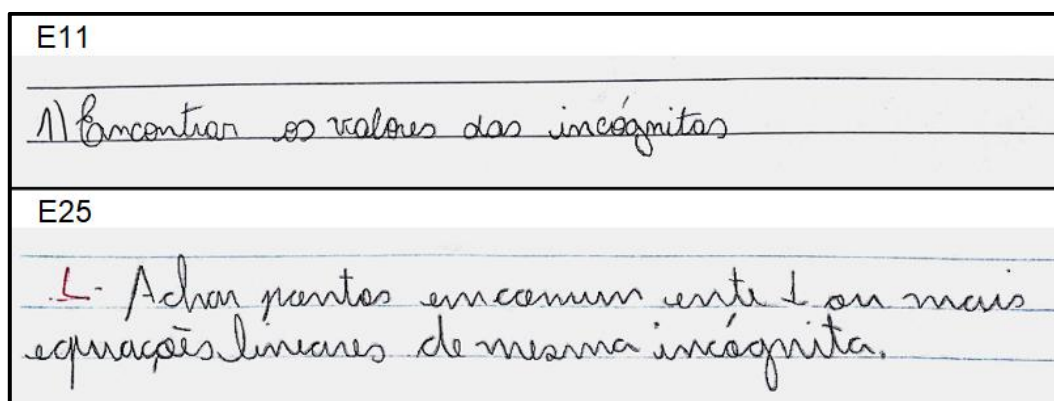 E11
1) Encontrar os valores das incógnitas
E25
1- Achar pontos em comum ente 1 ou mais
equações lineares de mesma incógnita.